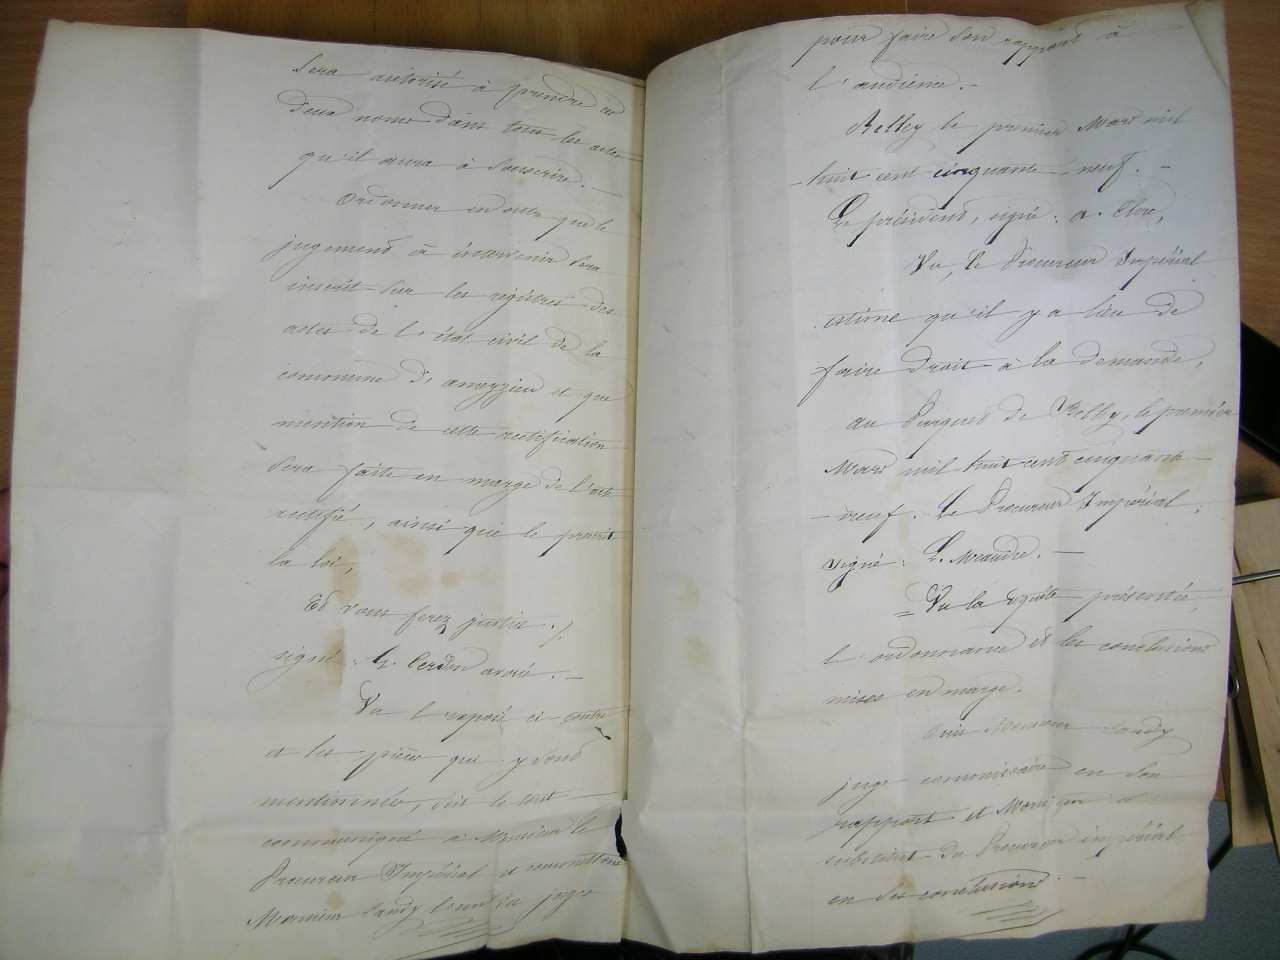 sera autorisé à prendre ces
deux noms dans tous les actes
qu'il aura à souscrire. —
Ordonner en outre que le
jugement à intervenir sera
inscrit sur les registres des
actes de l'état civil de la
commune d'
et que
mention de cette rectification
sera faite en marge de l'acte
rectifié, ainsi que le prescrit
la loi,
Et vous ferez justice.
signé : avoué. —
Vu l'exposé ci-contre
et les pièces qui y sont
mentionnées, soit le tout
communiqué à Monsieur le
Procureur Impérial et commettons
Monsieur juge
pour faire son rapport à
l'audience. —
Belley le premier Mars mil
huit cent cinquante-neuf. —
Le président, signé : a.
Vu, Le Procureur Impérial
estime qu'il y a lieu de
faire droit à la demande,
au Parquet de Belley, le premier
Mars mil huit cent cinquante
-neuf. Le Procureur Impérial,
signé : L. —
= Vu la requête présentée,
l'ordonnance et les conclusions
mises en marge.
Ouï Monsieur
juge commissaire en son
rapport et Monsieur
substitut du Procureur impérial
en ses conclusions. —